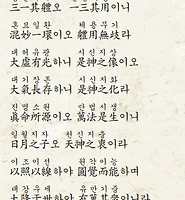 三一其體오 一三其用이니
혼묘일환 체용무기
混妙一環이오 體用無岐라
대허유광 시신지상
大虛有光하니 是神之像이오
대기장존 시신지화
大氣長存하니 是神之化라
진명소원 만법시생
眞命所源이오 萬法是生이니
일월지자 천신지충
日月之子오 天神之衷이라
이조이선 원각이능
以照以線하야 圓覺而能하며
대강우세 유만기중
大降于世하야 有萬其衆이니라